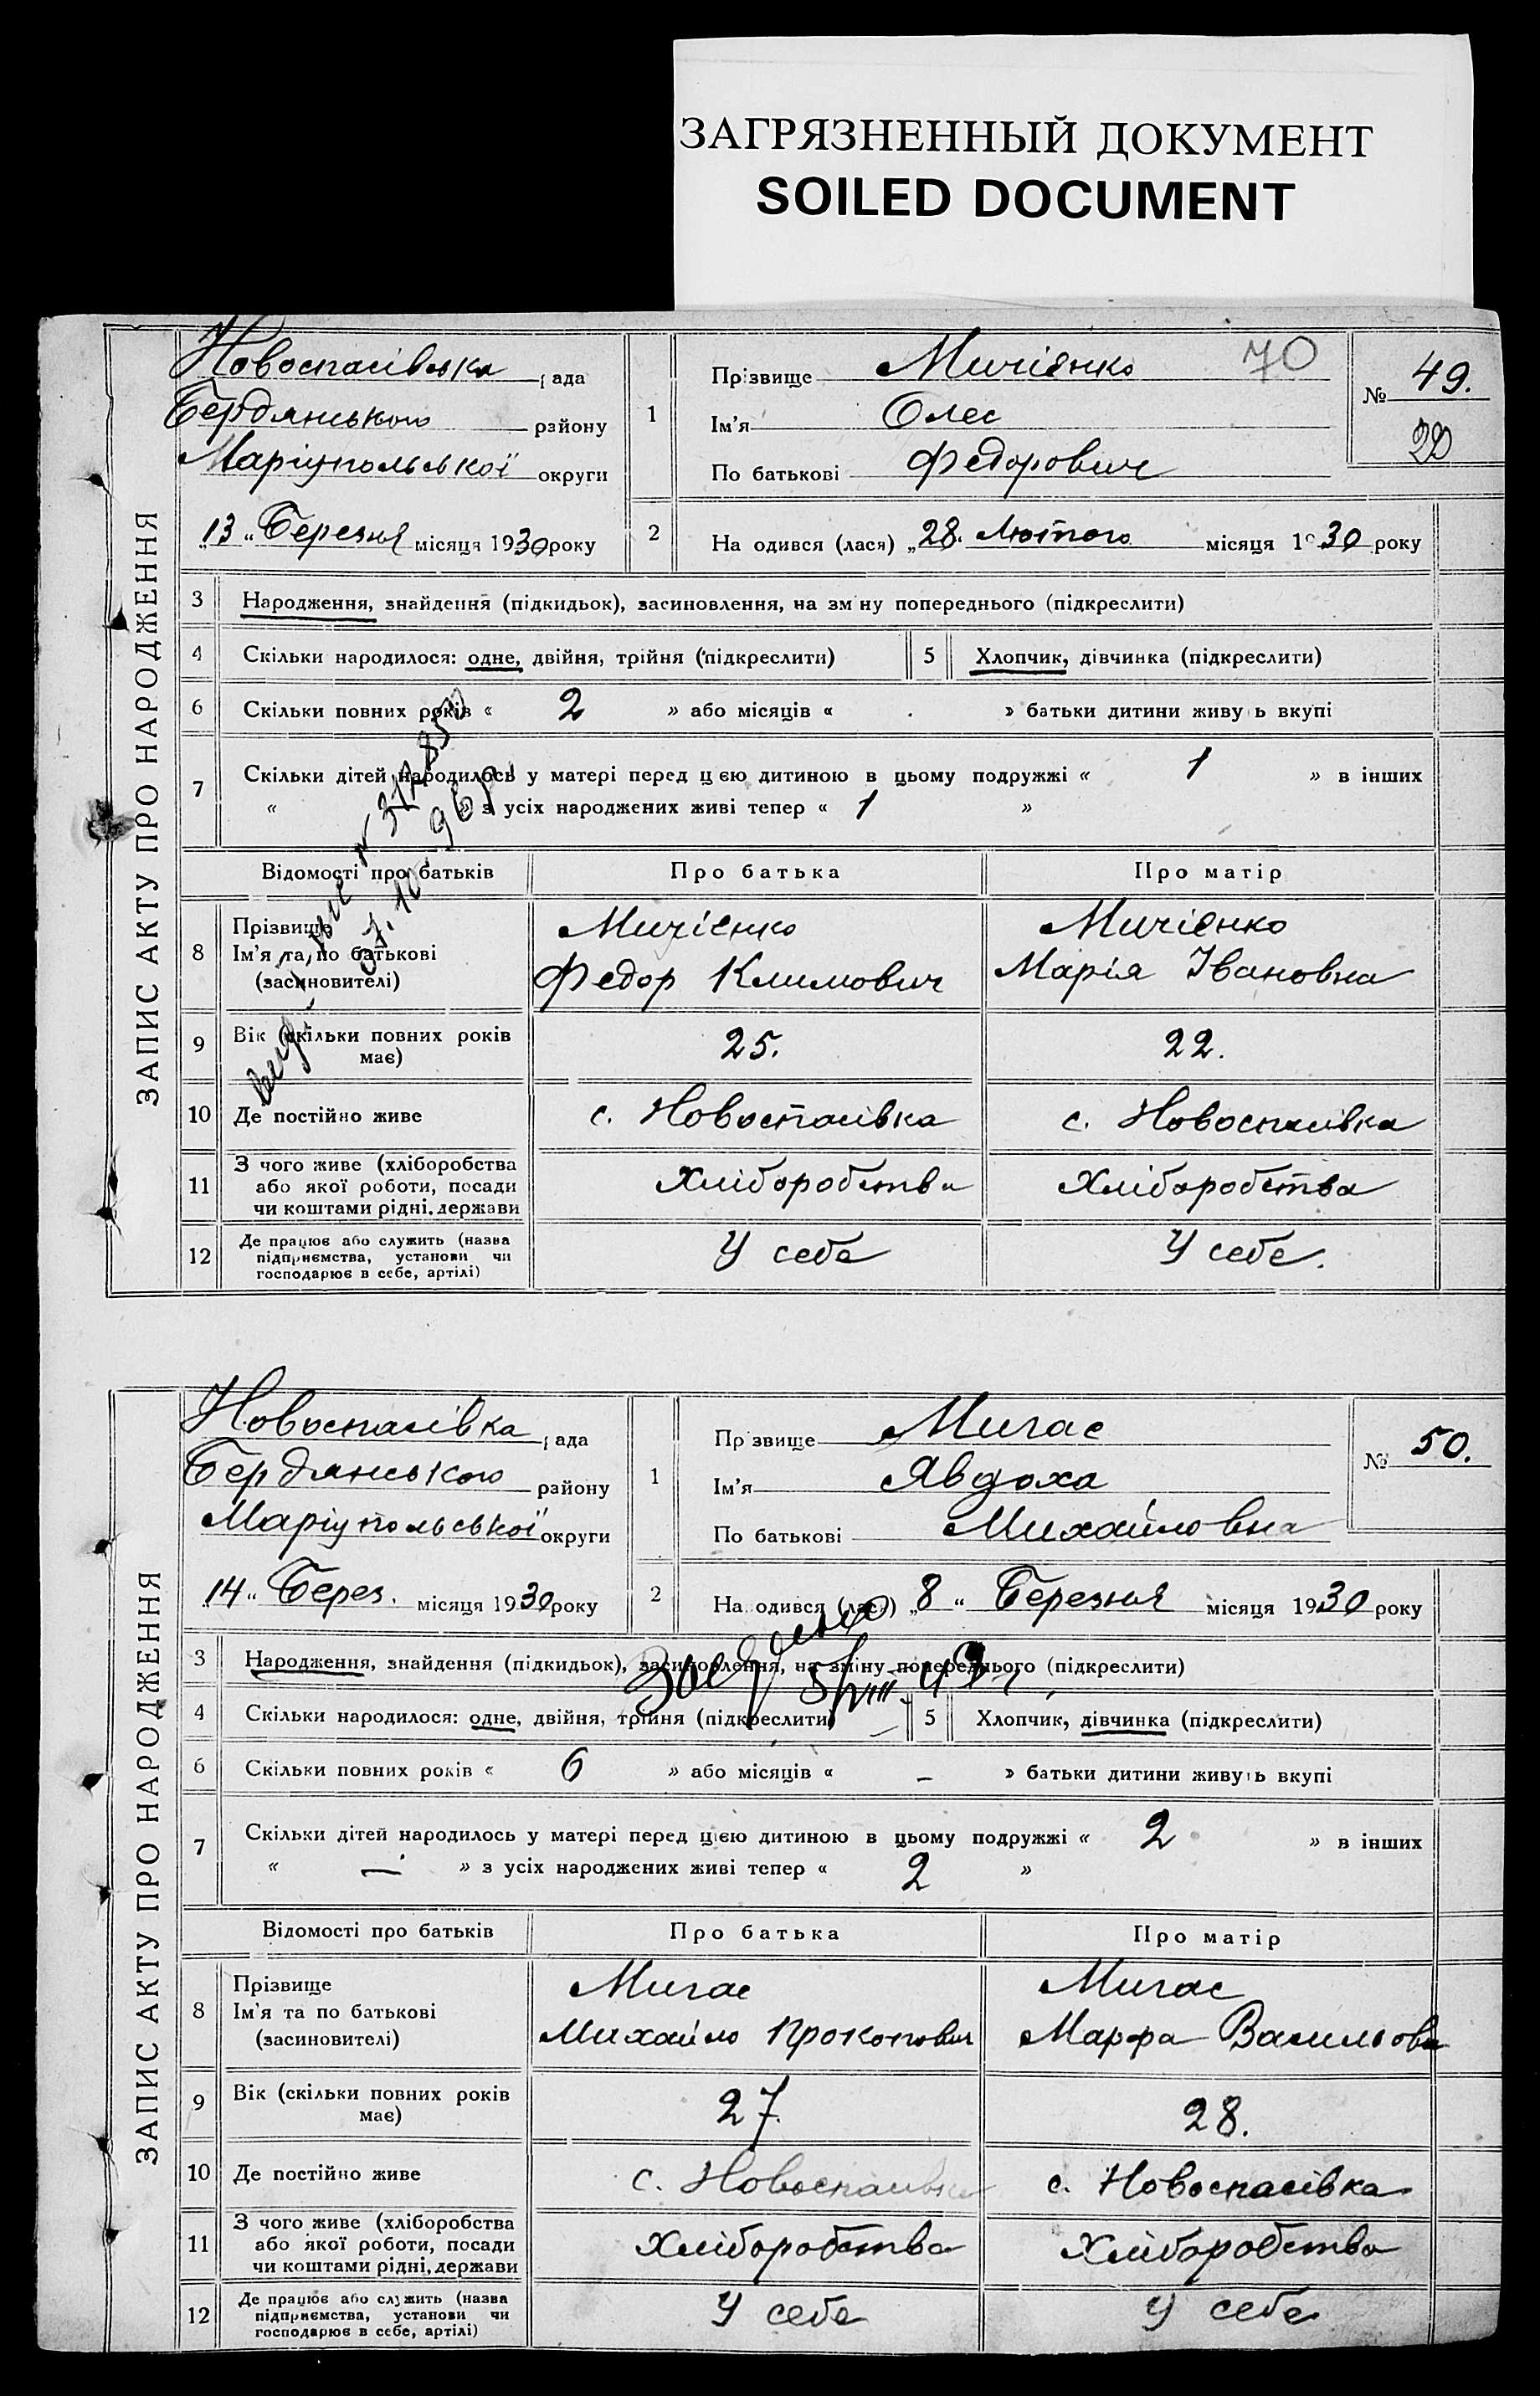 ЗАГРЯЗНЕННЫЙ ДОКУМЕНТ
SOILED DOCUMENT
ЗАПИС АКТУ ПРО НАРОДЖЕННЯ
Новоспасівська рада
Бердянського району
Маріупольської округи
„13“ Березня місяця 1930 року
1
Прізвище Мичіенко
70
Ім'я Олес
По батькові Федорович
№ 49.
2
На одився (лася) „28. Лютого місяця 1930 року
3 Народження, знайдення (підкидьок), засиновлення, на зміну попереднього (підкреслити)
4 Скільки народилося: одне, двійня, трійня (підкреслити) 5 Хлопчик, дівчинка (підкреслити)
6 Скільки повних років « 2 » або місяців « » батьки дитини живуть вкупі
7 Скільки дітей народилось у матері перед цією дитиною в цьому подружжі « 1 » в інших
« » з усіх народжених живі тепер « 1 »
Відомості про батьків Про батька Про матір
8 Прізвище Мичіенко Мичіенко
Ім'я та по батькові Федор Климович Марія Івановна
(засиновителі)
9 Вік (скільки повних років має) 25. 22.
10 Де постійно живе с. Новоспасівка с. Новоспасівка
11 З чого живе (хліборобства
або якої роботи, посади Хліборобства Хліборобства
чи коштами рідні, держави
12 Де працює або служить (назва
підприємства, установи чи У себе У себе.
господарює в себе, артілі)
ЗАПИС АКТУ ПРО НАРОДЖЕННЯ
Новоспасівка рада
Бердянського району
Маріупольської округи
„14“ Берез. місяця 1930 року
1
Прізвище Мигас
Ім'я Явдоха
По батькові Михайловна
№ 50.
2
На одився (лася) „8“ Березня місяця 1930 року
3 Народження, знайдення (підкидьок), засиновлення, на зміну попереднього (підкреслити)
4 Скільки народилося: одне, двійня, трійня (підкреслити) 5 Хлопчик, дівчинка (підкреслити)
6 Скільки повних років « 6 » або місяців « – » батьки дитини живуть вкупі
7 Скільки дітей народилось у матері перед цією дитиною в цьому подружжі « 2 » в інших
« — » з усіх народжених живі тепер « 2 »
Відомості про батьків Про батька Про матір
8 Прізвище Мигас Мигас
Ім'я та по батькові Михайло Прокопович Марфа Васильовн
(засиновителі)
9 Вік (скільки повних років має) 27. 28.
10 Де постійно живе с. Новоспасівка с. Новоспасівка
11 З чого живе (хліборобства
або якої роботи, посади Хліборобства Хліборобства
чи коштами рідні, держави
12 Де працює або служить (назва
підприємства, установи чи У себе У себе
господарює в себе, артілі)